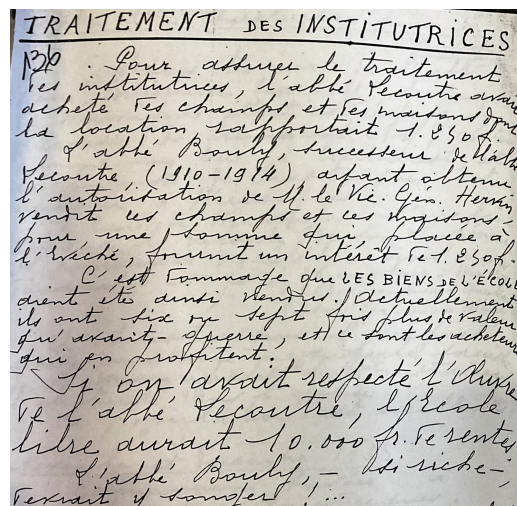 TRAITEMENT DES INSTITUTRICES
136. Pour assurer le traitement
des institutrices, l'abbé Lecoutre avait
acheté des champs et des maisons dont
la location rapportait 1.250 f.
L'abbé Bouly, successeur de l'abbé
Lecoutre (1910-1914), ayant obtenu
l'autorisation de M. le Vic. Gén. Hervin
vendit ces champs et ces maisons
pour une somme qui placée à
l'Evêché, fournit un intérêt de 1.250f.
C'est dommage que LES BIENS DE L'ÉCOLE
aient été ainsi vendus! Actuellement
ils ont six ou sept fois plus de valeur
qu'avant-guerre, et ce sont les acheteurs
qui en profitent.
Si on avait respecté l'Œuvre
de l'abbé Lecoutre, l'Ecole
libre aurait 10.000 fr. de rentes
L'abbé Bouly, - si riche -,
devrait y songer!...